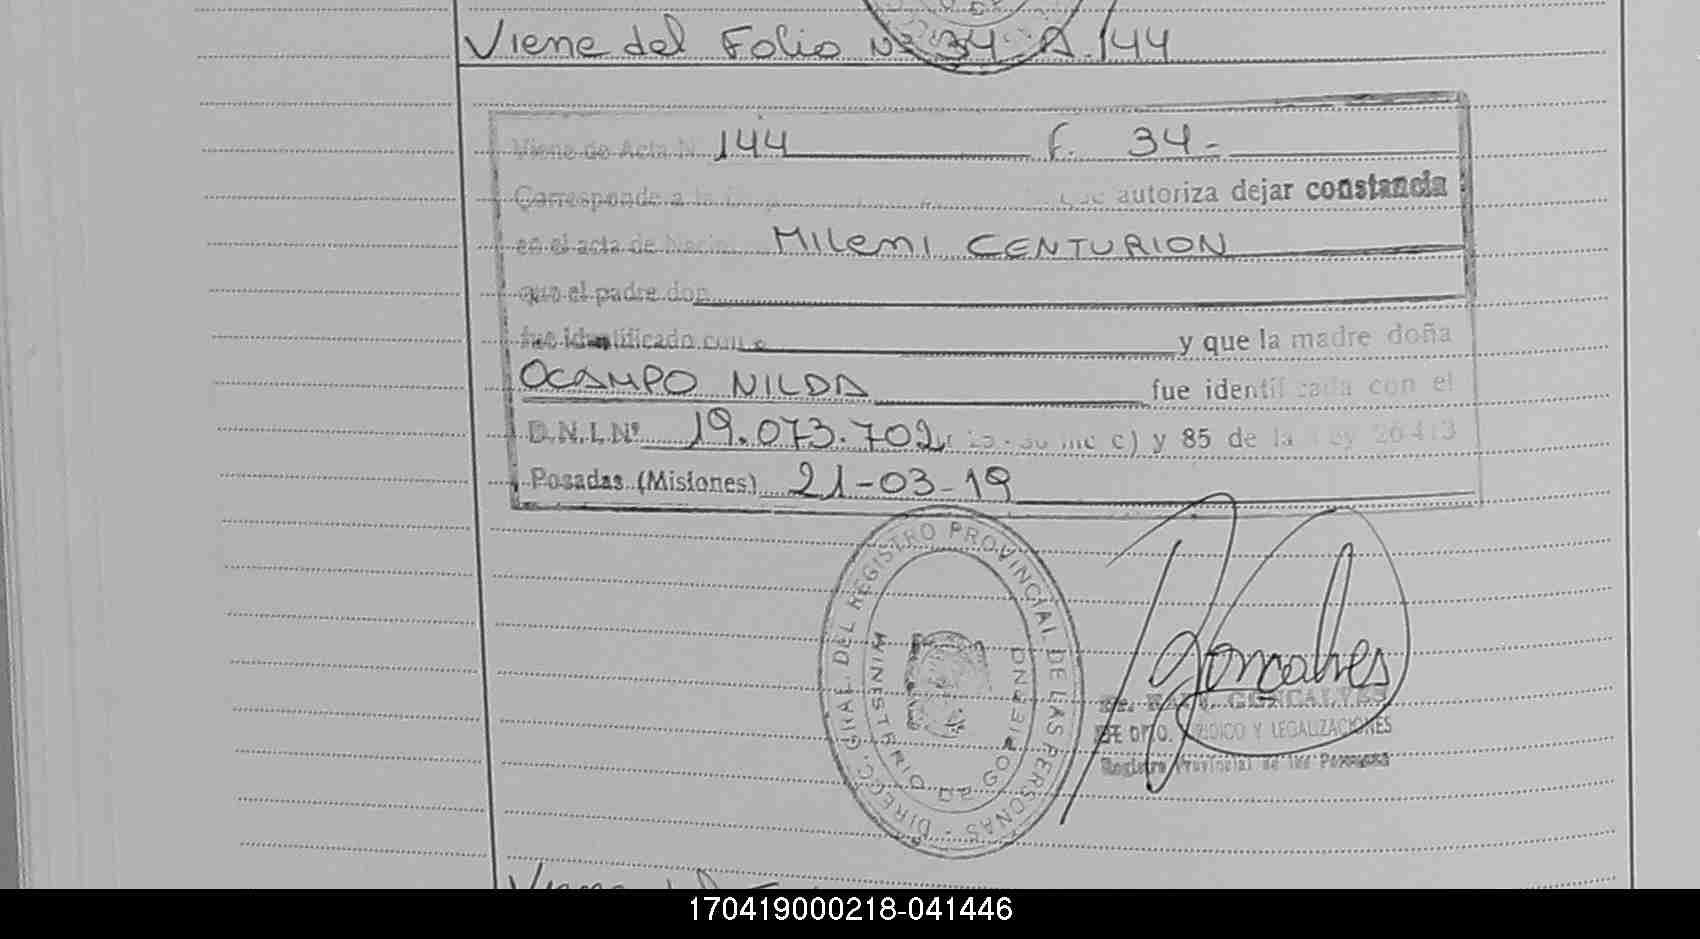 Viene del Folio Nº 34 A. 144
Viene de Acta N 144 F. 34-
Corresponde a la que autoriza dejar constancia
en el acta de Nacimi Milemi CENTURION
que el padre don
fue identificado con e y que la madre doña
OCAMPO NILDA fue identificada con el
D.N.I. Nº 19.073.702 inc c) y 85 de la Ley 26413
Posadas (Misiones) 21-03-19
DIRECC. GRAL. DEL REGISTRO PROVINCIAL DE LAS PERSONAS
MINISTERIO DE GOBIERNO
Goncalves
GONCALVES
DPTO. JURIDICO Y LEGALIZACIONES
Registro Provincial de las Personas
Viene del
170419000218-041446